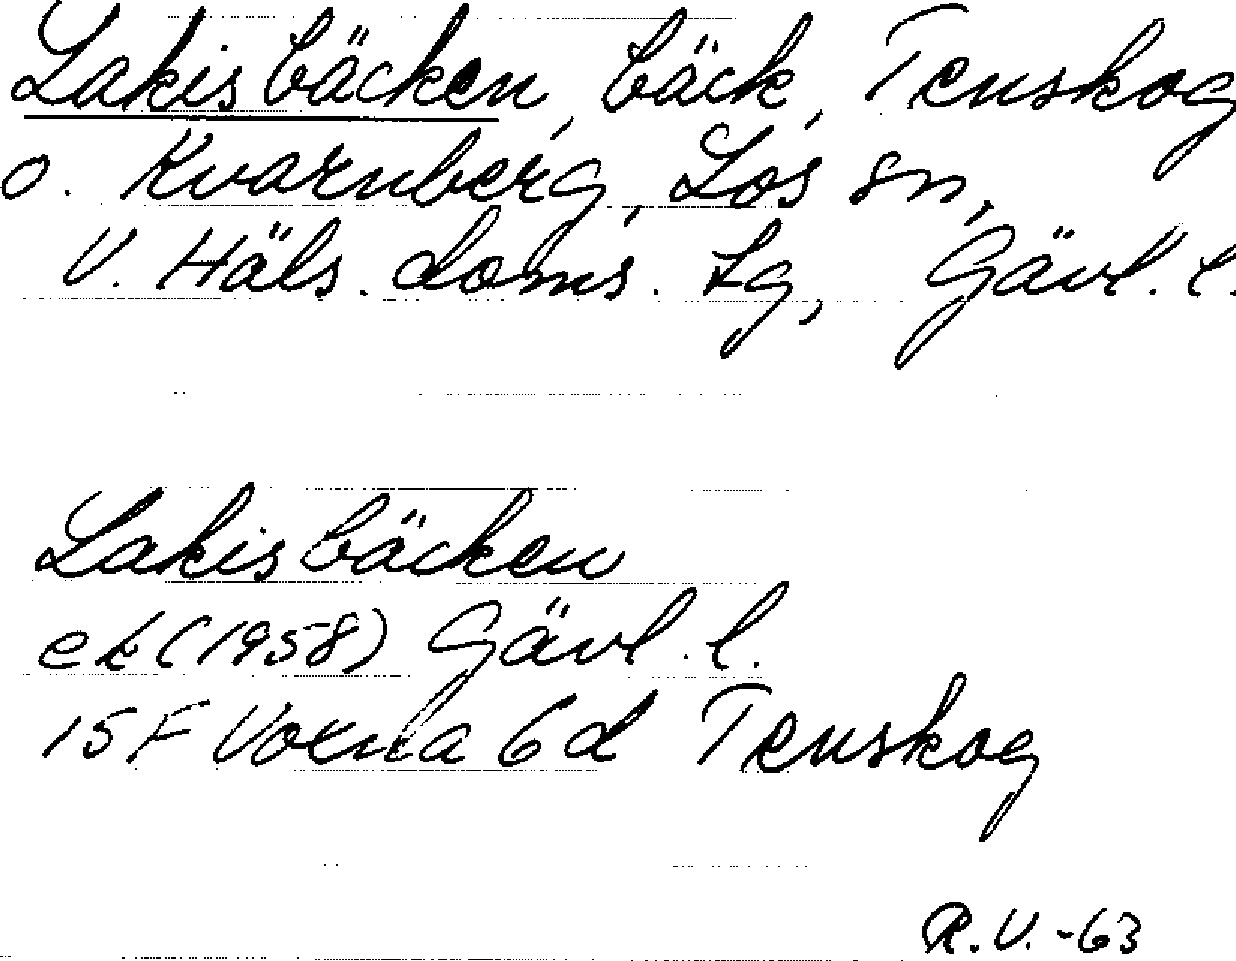 Lakisbäcken, bäck, Tenskog
o. Kvarnberg, Los sn,
V. Häls. doms. Lg, Gävl. l.
Lakisbäcken
ek (1958) Gävl. l.
15F Vorna 6d Tenskog
R.V. -63